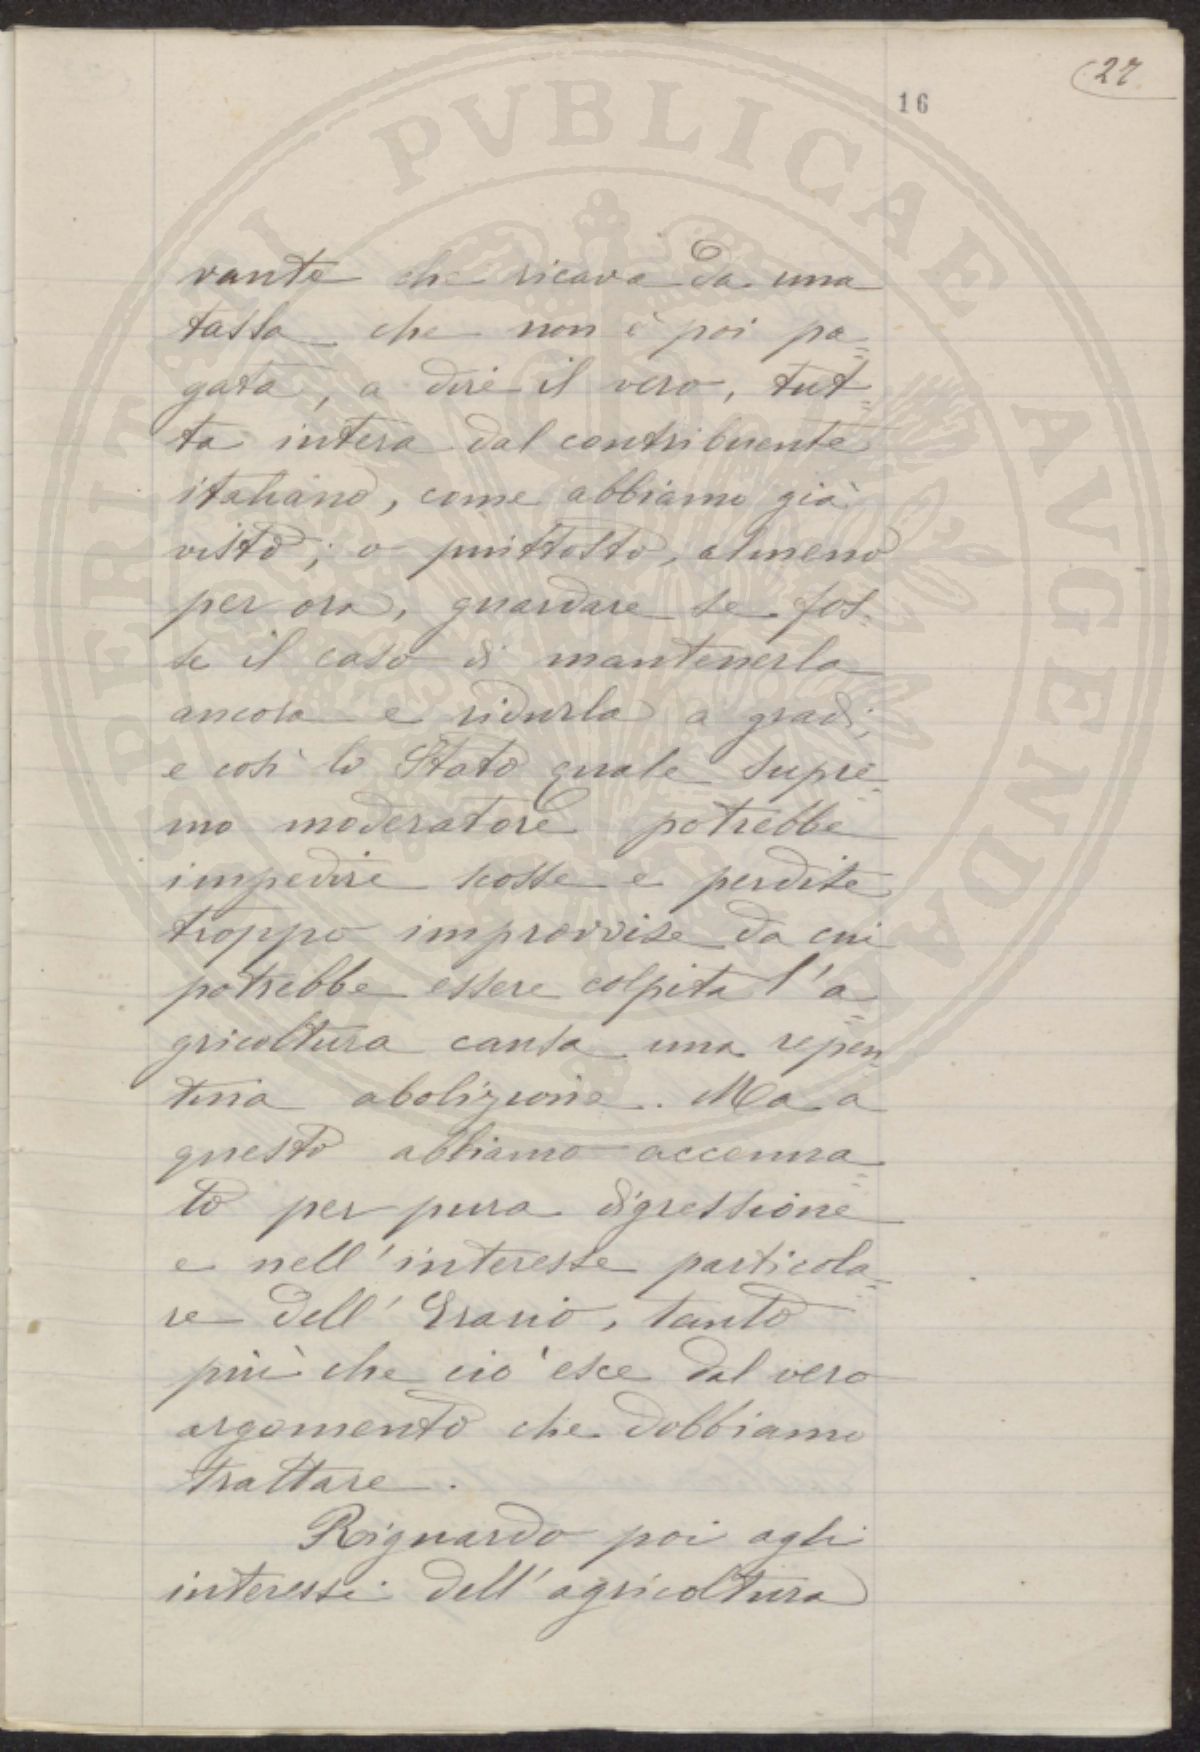 27
16
vante che ricava da una
tassa che non è poi pa=
gata, a dire il vero, tut=
ta intera dal contribuente
italiano, come abbiamo già
visto; o piuttosto, almeno
per ora, guardare se fos=
se il caso di mantenerla
ancora e ridurla a gradi,
e così lo Stato quale supre=
mo moderatore potrebbe
impedire scosse e perdite
troppo improvvise da cui
potrebbe essere colpita l'a=
gricoltura causa una repen=
tina abolizione. Ma a
questo abbiamo accenna=
to per pura digressione
e nell'interesse particola=
re dell'Erario, tanto
più che ciò esce dal vero
argomento che dobbiamo
trattare.
Riguardo poi agli
interessi dell'agricoltura
PROSPERITATI PVBLICAE AVGENDAE